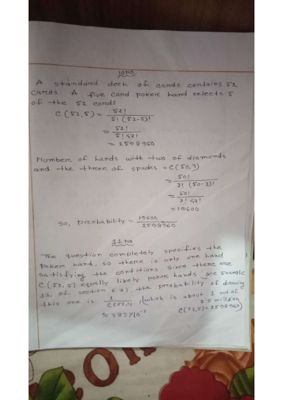 A standard deck of cards contains 52
cards. A five card poker hand selects 5
of the 52 cards
C (52,5) = 52! / 5! (52-5)!
= 52! / 5! 47!
= 2598960
Number of hands with two of diamonds
and the three of spades = C(50,3)
= 50! / 3! (50-3)!
= 50! / 3! 47!
= 19600
So, probability = 19600 / 2598960
The question completely specifies the
poker hand, so there is only one hand
satisfying the conditions. Since there are
C(52,5) equally likely poker hands (see example
of section 6.3), the probability of drawing
this one is 1 / C(52,5) (which is about 1 out of
2.5 million
C(52,5)=2598960)